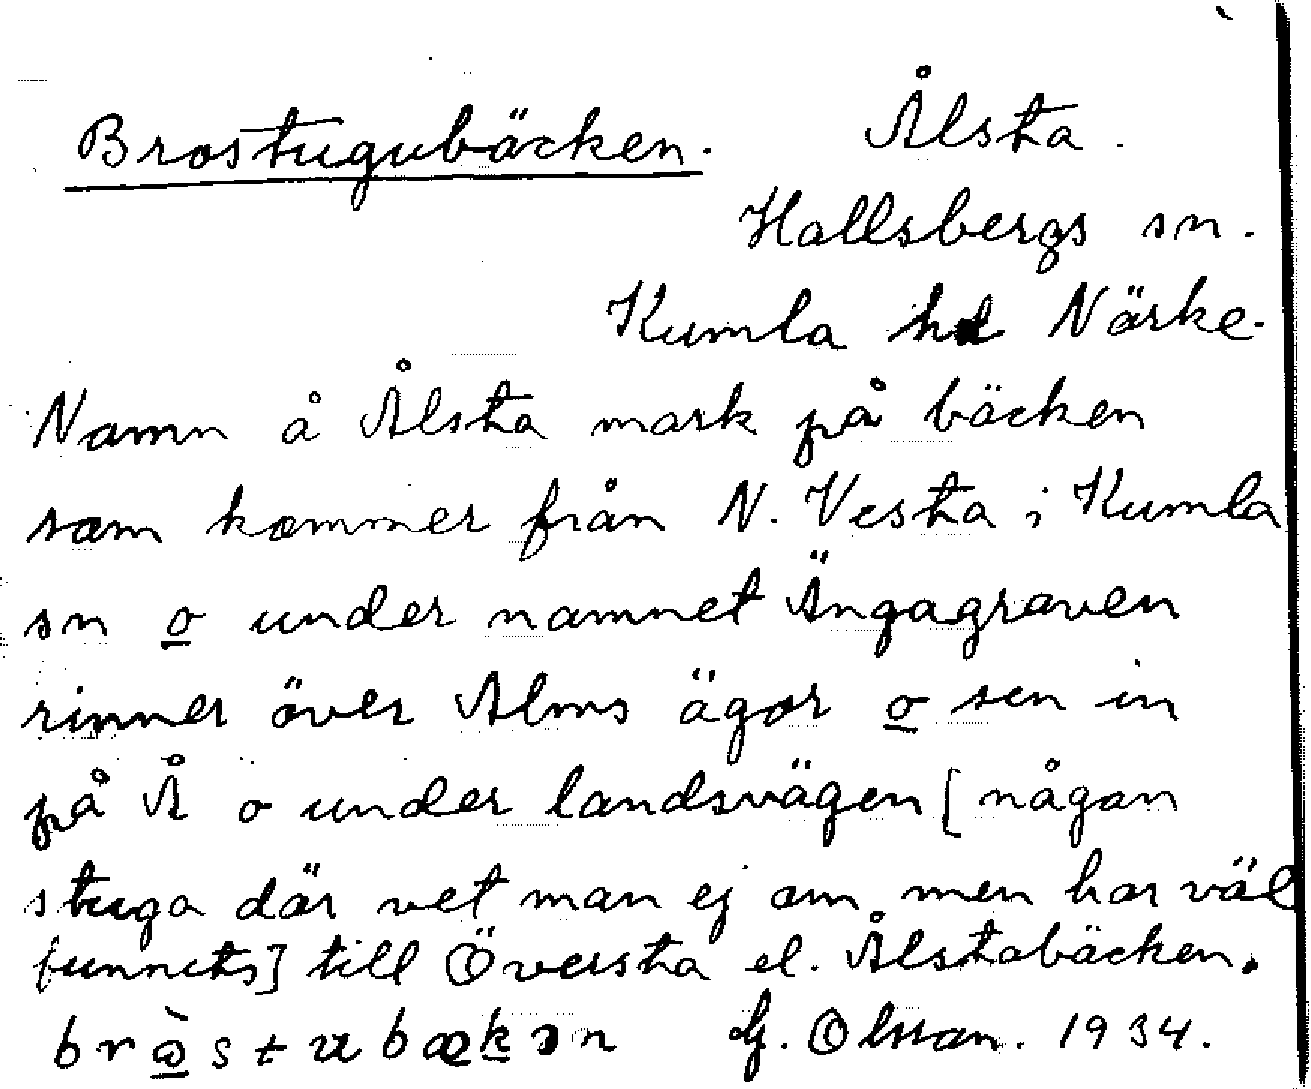 Brostugubäcken. Ålsta.
Hallsbergs sn.
Kumla hd Närke.
Namn å Ålsta mark på bäcken
som kommer från N. Vesta i Kumla
sn o under namnet Ängagraven
rinner över Alms ägor o sen in
på Å o under landsvägen [någon
stuga där vet man ej om men har väl
funnits] till Översta el. Ålstabäcken.
G. Olsson. 1934.